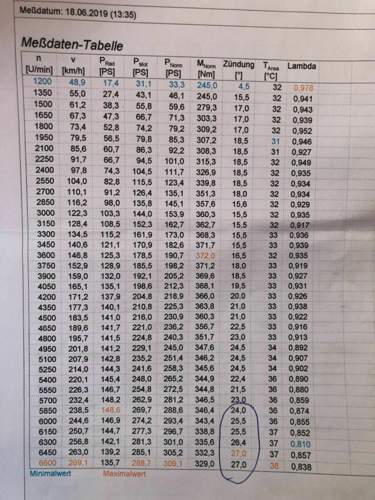 Meßdatum: 18.06.2019 (13:35)
Meßdaten-Tabelle
n v PRad PMot PNorm MNorm Zündung TAnsa Lambda
[U/min] [km/h] [PS] [PS] [PS] [Nm] [°] [°C]
1200 48,9 17,4 31,1 33,3 245,0 4,5 32 0,978
1350 55,0 27,4 43,1 46,1 245,0 15,5 32 0,941
1500 61,2 38,3 55,8 59,6 279,3 17,0 32 0,943
1650 67,3 47,3 66,7 71,3 303,3 17,0 32 0,939
1800 73,4 52,8 74,2 79,2 309,2 17,0 32 0,952
1950 79,5 56,5 79,8 85,3 307,2 18,5 31 0,946
2100 85,6 60,7 86,3 92,2 308,3 18,5 31 0,927
2250 91,7 66,7 94,5 101,0 315,3 18,5 32 0,949
2400 97,8 74,3 104,5 111,7 326,9 18,5 32 0,935
2550 104,0 82,8 115,5 123,4 339,8 18,5 32 0,934
2700 110,1 91,2 126,4 135,1 351,3 18,0 32 0,934
2850 116,2 98,0 135,8 145,1 357,6 15,6 32 0,929
3000 122,3 103,3 144,0 153,9 360,3 15,5 32 0,935
3150 128,4 108,5 152,3 162,7 362,7 15,5 32 0,917
3300 134,5 115,2 161,9 173,0 368,3 15,5 33 0,936
3450 140,6 121,1 170,9 182,6 371,7 15,5 33 0,939
3600 146,8 125,3 178,5 190,7 372,0 16,5 32 0,935
3750 152,9 128,9 185,5 198,2 371,2 18,0 33 0,919
3900 159,0 132,0 192,1 205,2 369,6 18,5 33 0,927
4050 165,1 135,1 198,6 212,3 368,1 19,5 33 0,931
4200 171,2 137,9 204,8 218,9 366,0 20,0 33 0,926
4350 177,3 140,1 210,8 225,3 363,8 21,0 33 0,938
4500 183,5 141,0 216,0 230,9 360,3 21,0 33 0,922
4650 189,6 141,7 221,0 236,2 356,7 22,5 33 0,916
4800 195,7 141,5 224,8 240,3 351,7 23,0 33 0,913
4950 201,8 141,2 229,1 245,0 347,6 24,5 34 0,892
5100 207,9 142,8 235,2 251,4 346,2 24,5 34 0,907
5250 214,0 144,3 241,6 258,3 345,6 24,5 34 0,902
5400 220,1 145,4 248,0 265,2 344,9 22,4 36 0,890
5550 226,3 146,7 254,8 272,5 344,8 21,5 36 0,880
5700 232,4 148,2 262,9 281,2 346,5 23,0 36 0,859
5850 238,5 148,6 269,7 288,6 346,4 24,0 36 0,874
6000 244,6 146,9 274,2 293,4 343,4 25,5 36 0,855
6150 250,7 144,7 277,3 296,7 338,8 25,5 37 0,852
6300 256,8 142,1 281,3 301,0 335,6 26,4 37 0,810
6450 263,0 139,2 285,1 305,2 332,3 27,0 37 0,857
6600 269,1 135,7 288,7 309,1 329,0 27,0 38 0,838
Minimalwert Maximalwert